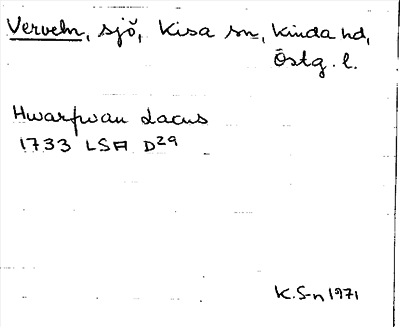 Verveln, sjö, Kisa sn, Kinda hd,
Östg. l.
Hwarfwan Lacus
1733 LSA D29
K. S-n 1971